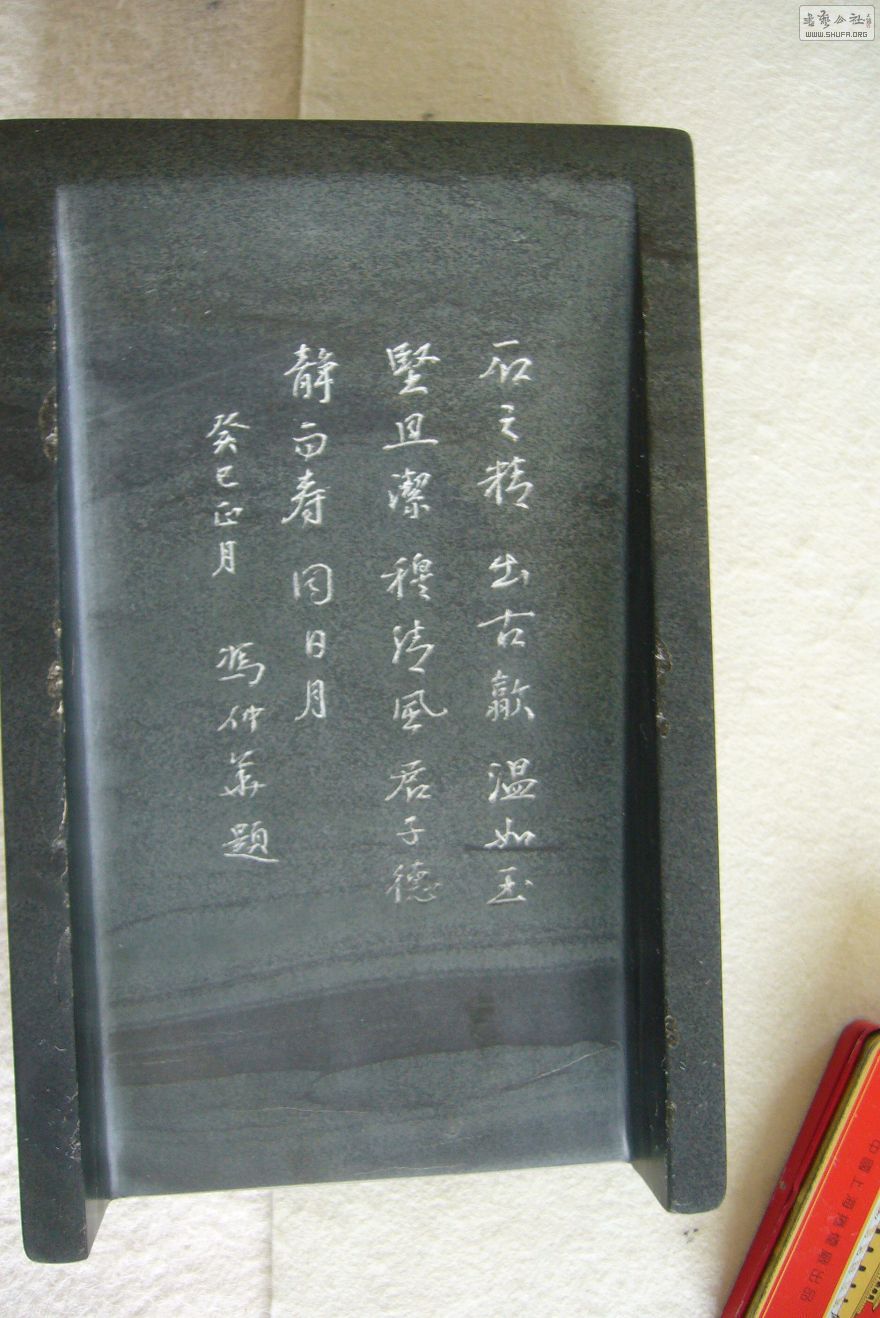 石之精 出古歙 温如玉
堅且潔 穆清風 君子德
静而寿 同日月
癸巳正月 馮仲華題
中國上海捲煙廠出品
書藝公社
WWW.SHUFA.ORG